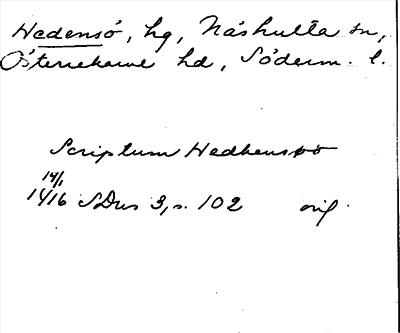 Hedensö, hg, Näshulta sn,
Österrekarne hd, Söderm. l.
Scriptum Hedhensöö
14/1
1416 SDns 3, s. 102 orig.